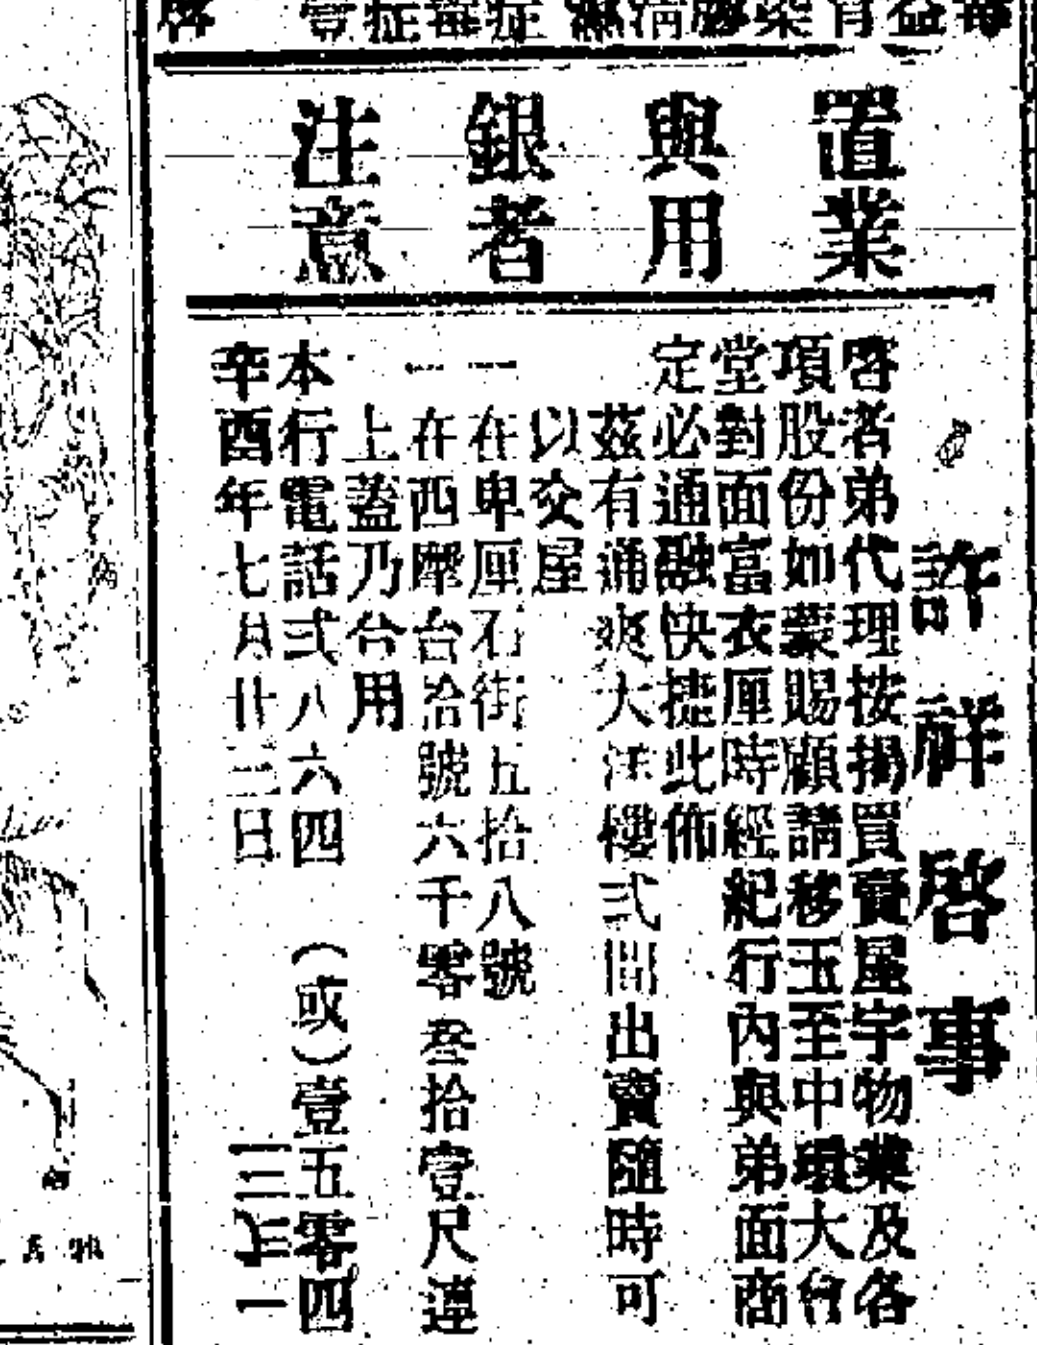 置業
與用
銀者
注意
許祥啓事
啓者弟代理按揭買賣屋宇物業及各
項股份如蒙賜顧請移玉至中環大會
堂對面富衣厘時經紀行內與弟面商
定必通融快捷此佈
茲有通爽大洋樓弍間出賣隨時可
以交屋
一在卑厘石街五拾八號
一在西摩台拾號六千零叁拾壹尺連
上蓋乃合用
本行電話弍八六四（或）壹五零四
辛酉年七月廿三日